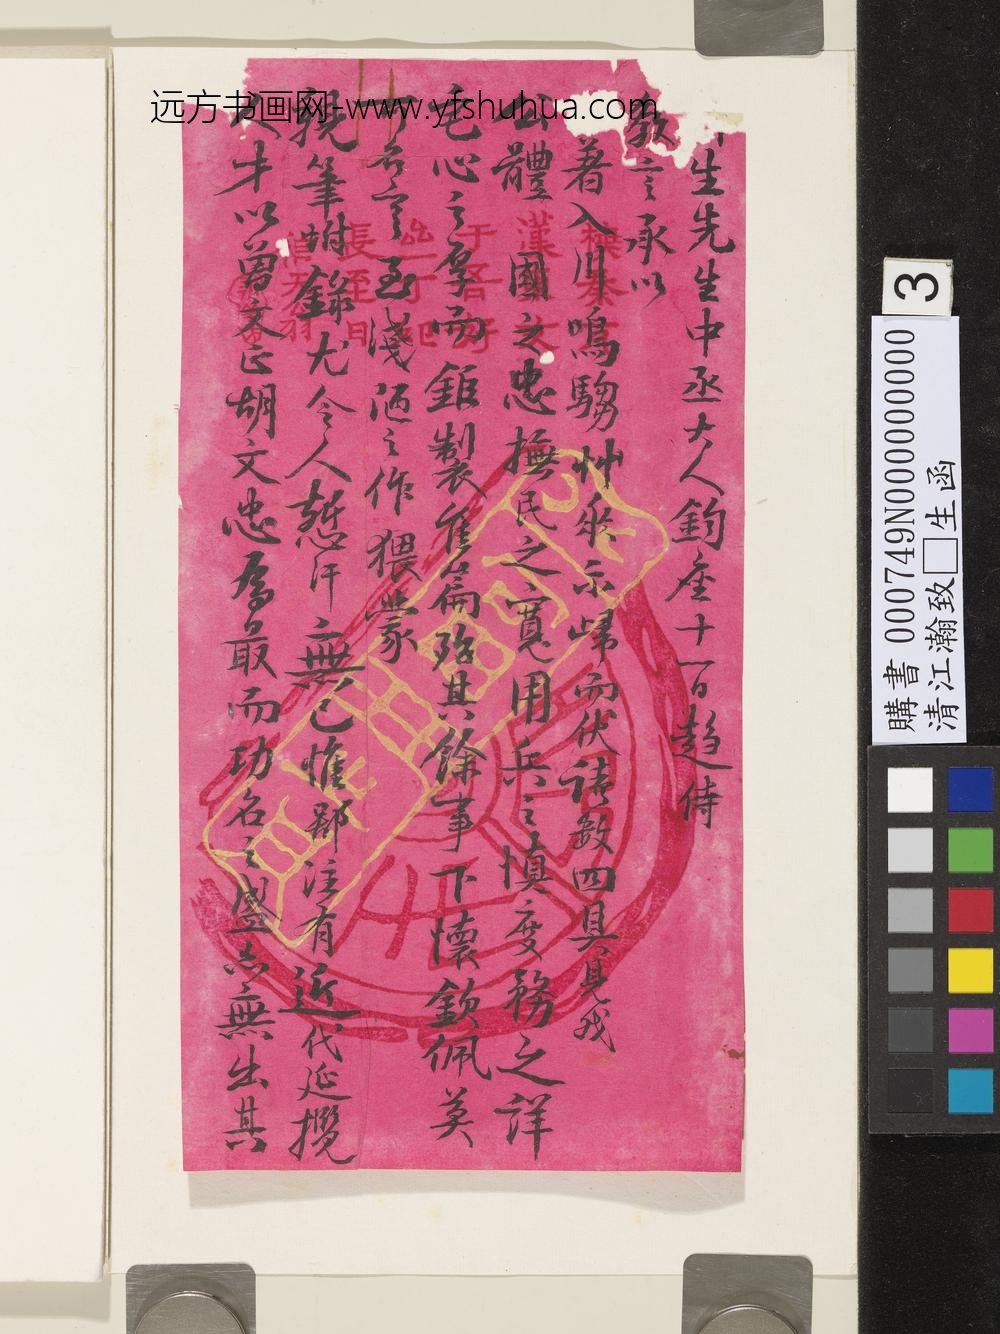 远方书画网-www.yfshuhua.com
生先生中丞大人鈞座十一百趨侍
教言承以
著入川鳴騶艸乘示歸而伏讀數四具見我
公體國之忠撫民之寬用兵之慎度務之詳
宅心之厚而鉅製隹篇殆其餘事下懷欽佩莫
可名言至淺陋之作猥蒙
親筆坿錄尤令人慙汗無已惟鄙注有近代延攬
人才以曾文正胡文忠為最而功名之盛亦無出其
長至日
3
購書 000749N000000000
清江瀚致□生函